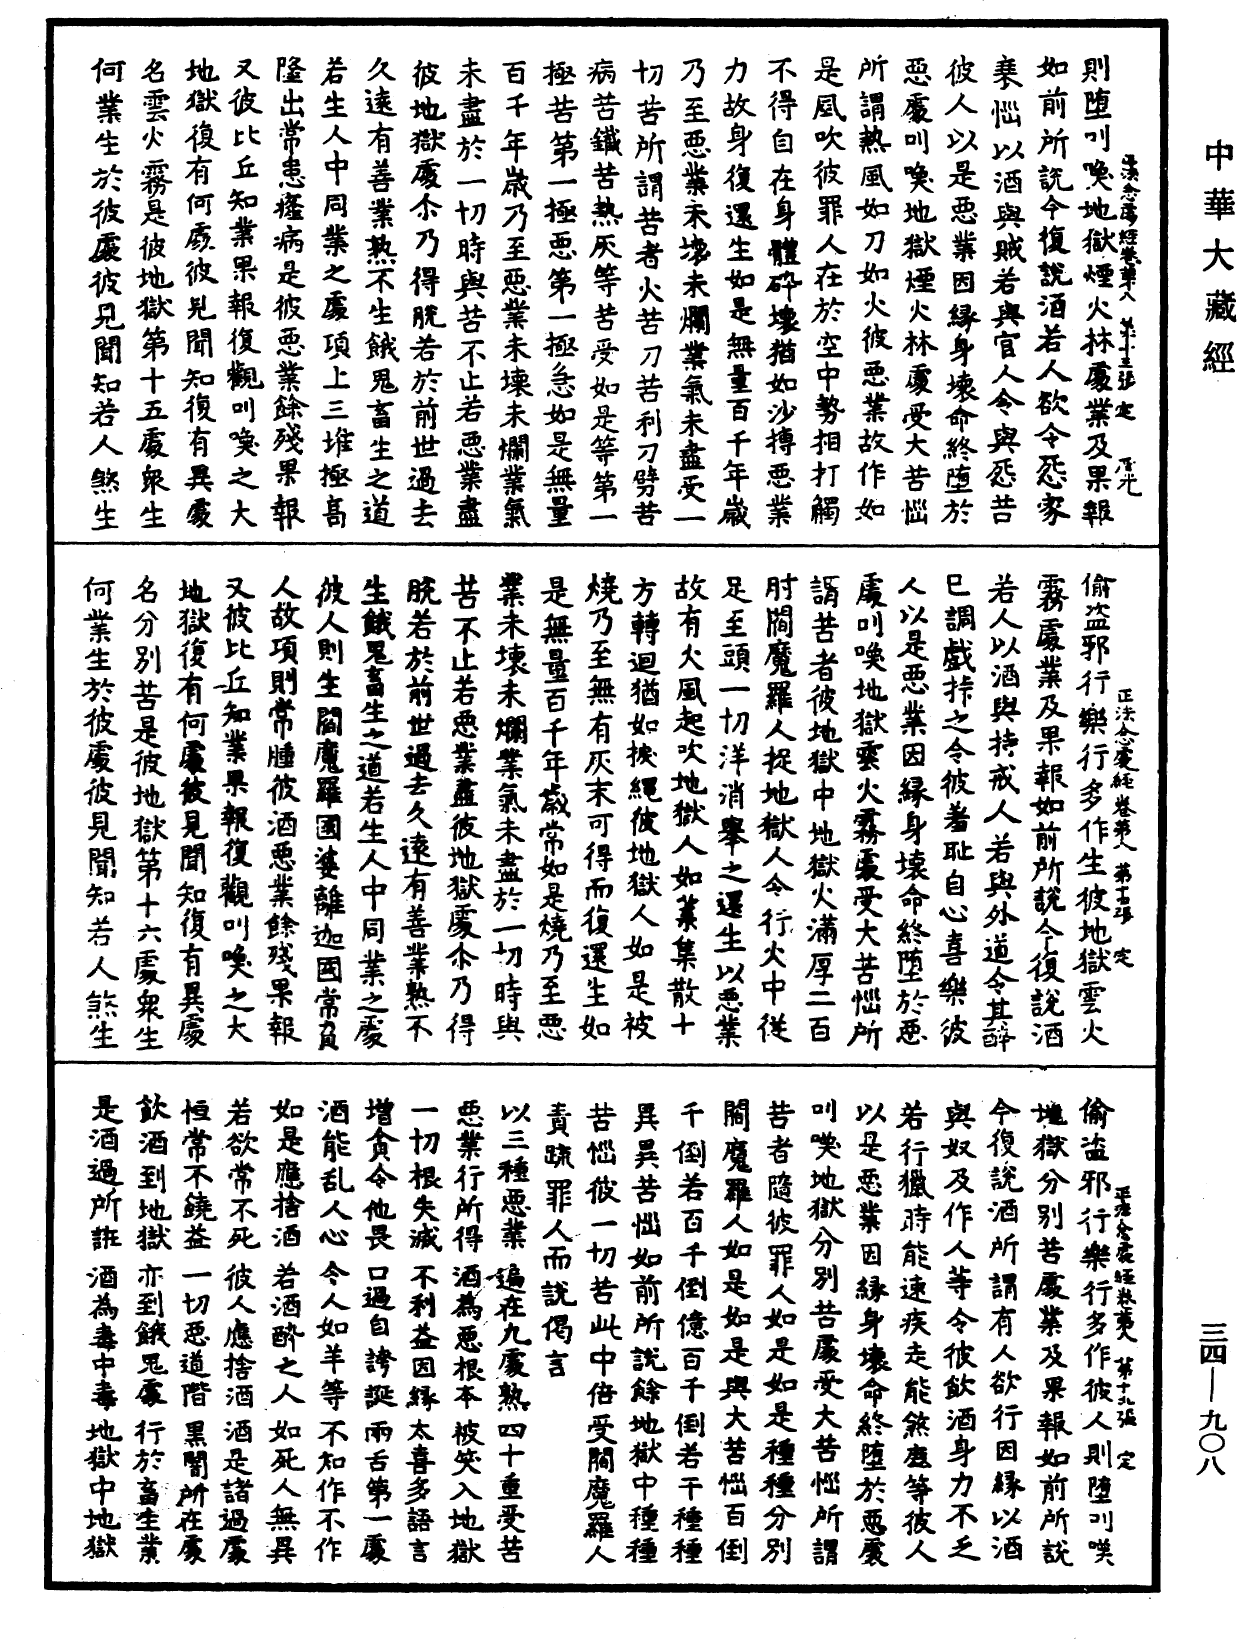 中華大藏經
則墮叫喚地獄煙火林處業及果報
如前所說今復說酒若人欲令怨家
衰惱以酒與賊若與官人令與怨苦
彼人以是惡業因緣身壞命終墮於
惡處叫喚地獄煙火林處受大苦惱
所謂熱風如刀如火彼惡業故作如
是風吹彼罪人在於空中勢相打觸
不得自在身體碎壞猶如沙搏惡業
力故身復還生如是無量百千年歲
乃至惡業未壞未爛業氣未盡受一
切苦所謂苦者火苦刀苦利刀劈苦
病苦鐵苦熱灰等苦受如是等第一
極苦第一極惡第一極急如是無量
百千年歲乃至惡業未壞未爛業氣
未盡於一切時與苦不止若惡業盡
彼地獄處尒乃得脫若於前世過去
久遠有善業熟不生餓鬼畜生之道
若生人中同業之處項上三堆極高
隆出常患癭病是彼惡業餘殘果報
又彼比丘知業果報復觀叫喚之大
地獄復有何處彼見聞知復有異處
名雲火霧是彼地獄第十五處眾生
何業生於彼處彼見聞知若人煞生
正法念處經卷第八 第十五張 定
偷盜邪行樂行多作生彼地獄雲火
霧處業及果報如前所說今復說酒
若人以酒與持戒人若與外道令其醉
已調戲挊之令彼羞恥自心喜樂彼
人以是惡業因緣身壞命終墮於惡
處叫喚地獄雲火霧處受大苦惱所
謂苦者彼地獄中地獄火滿厚二百
肘閻魔羅人捉地獄人令行火中從
足至頭一切洋消舉之還生以惡業
故有火風起吹地獄人如葉集散十
方轉迴猶如挍繩彼地獄人如是被
燒乃至無有灰末可得而復還生如
是無量百千年歲常如是燒乃至惡
業未壞未爛業氣未盡於一切時與
苦不止若惡業盡彼地獄處尒乃得
脫若於前世過去久遠有善業熟不
生餓鬼畜生之道若生人中同業之處
彼人則生閻魔羅國婆離迦國常負
人故項則常腫彼酒惡業餘殘果報
又彼比丘知業果報復觀叫喚之大
地獄復有何處彼見聞知復有異處
名分別苦是彼地獄第十六處眾生
何業生於彼處彼見聞知若人煞生
偷盜邪行樂行多作彼人則墮叫喚
地獄分別苦處業及果報如前所說
今復說酒所謂有人欲行因緣以酒
與奴及作人等令彼飲酒身力不乏
若行獵時能速疾走能煞鹿等彼人
以是惡業因緣身壞命終墮於惡處
叫喚地獄分別苦處受大苦惱所謂
苦者隨彼罪人如是如是種種分別
閻魔羅人如是如是與大苦惱百倒
千倒若百千倒億百千倒若干種種
異異苦惱如前所說餘地獄中種種
苦惱彼一切苦此中倍受閻魔羅人
責疏罪人而說偈言
以三種惡業 遍在九處熟 四十重受苦
惡業行所得 酒為惡根本 被笑入地獄
一切根失滅 不利益因緣 太喜多語言
增貪令他畏 口過自誇誕 兩舌第一處
酒能乱人心 令人如羊等 不知作不作
如是應捨酒 若酒醉之人 如死人無異
若欲常不死 彼人應捨酒 酒是諸過處
恒常不饒益 一切惡道階 黑闇所在處
飲酒到地獄 亦到餓鬼處 行於畜生業
是酒過所誑 酒為毒中毒 地獄中地獄
三四—九〇八